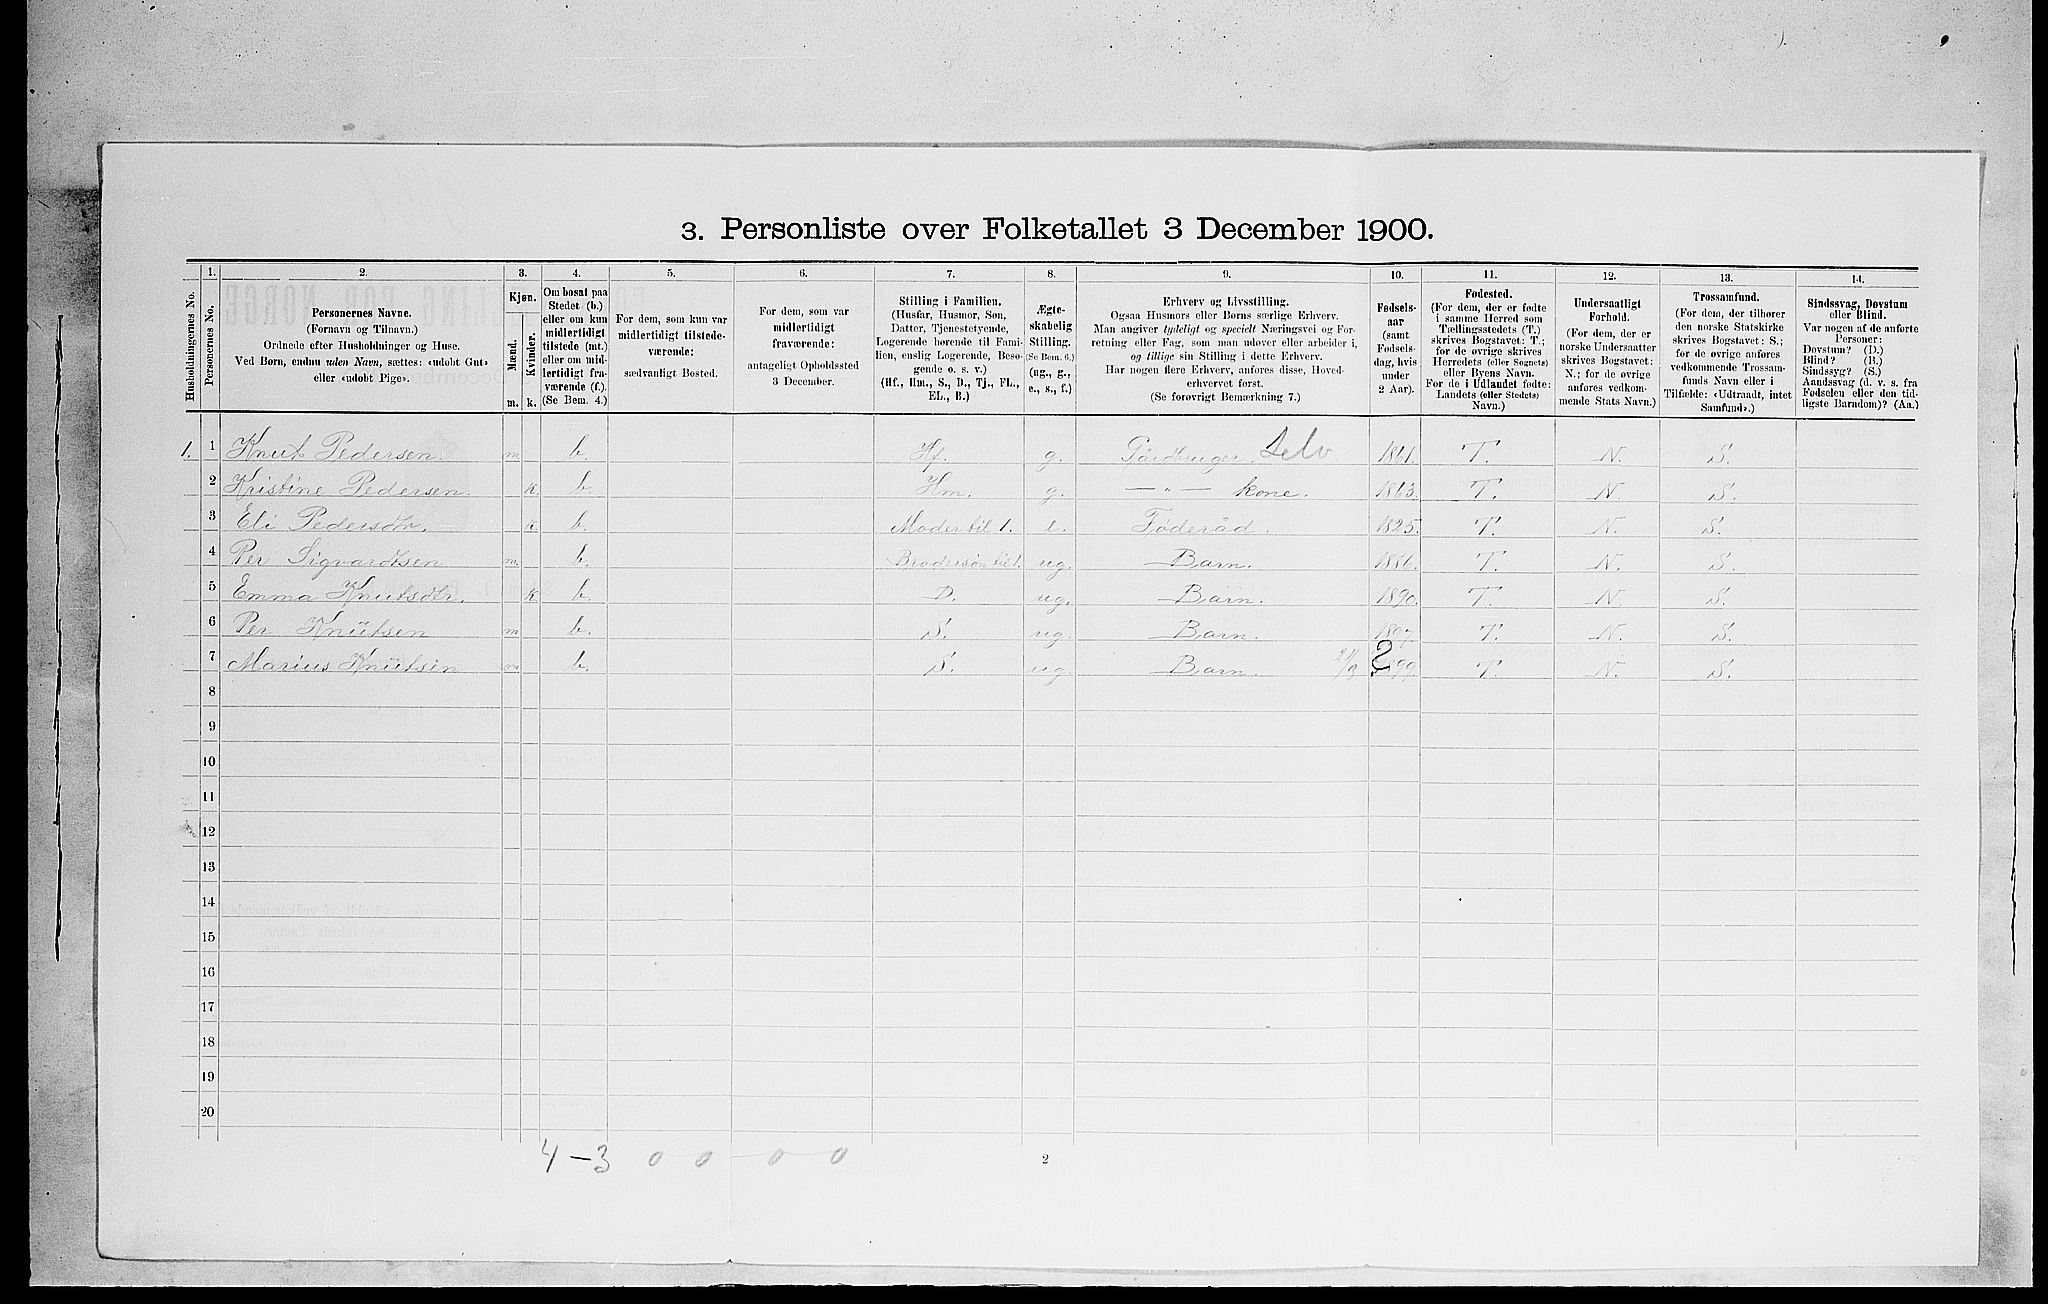 3. Personliste over Folketallet 3 December 1900.
1. 2. 3. 4. 5. 6. 7. 8. 9. 10. 11. 12. 13. 14.
Husholdningernes No.
Personernes No.
Personernes Navne.
(Fornavn og Tilnavn.)
Ordnede efter Husholdninger og Huse.
Ved Børn, endnu uden Navn, sættes: «udøbt Gut»
eller «udøbt Pige».
Kjøn.
Mænd.
Kvinder.
m. k.
Om bosat paa
Stedet (b.)
eller om kun
midlertidigt
tilstede (mt.)
eller om mid-
lertidigt fra-
værende (f.)
(Se Bem. 4.)
For dem, som kun var
midlertidigt tilstede-
værende:
sædvanligt Bosted.
For dem, som var
midlertidigt
fraværende:
antageligt Opholdssted
3 December.
Stilling i Familien.
(Husfar, Husmor, Søn,
Datter, Tjenestetyende,
Logerende hørende til Fami-
lien, enslig Logerende, Besø-
gende o. s. v.)
(Hf., Hm., S., D., Tj., FL.,
EL., B.)
Ægte-
skabelig
Stilling.
(Se Bem. 6.)
(ug., g.,
e., s., f.)
Erhverv og Livsstilling.
Ogsaa Husmors eller Børns særlige Erhverv.
Man angiver tydeligt og specielt Næringsvei og For-
retning eller Fag, som man udøver eller arbeider i,
og tillige sin Stilling i dette Erhverv.
Har nogen flere Erhverv, anføres disse, Hoved-
erhvervet først.
(Se forøvrigt Bemærkning 7.)
Fødsels-
aar
(samt
Fødsels-
dag, hvis
under
2 Aar).
Fødested.
(For dem, der er fødte
i samme Herred som
Tællingsstedets (T.)
skrives Bogstavet: T.;
for de øvrige skrives
Herredets (eller Sognets)
eller Byens Navn.
For de i Udlandet fødte:
Landets (eller Stedets)
Navn.)
Undersaatligt
Forhold.
(For dem, der er
norske Undersaatter
skrives Bogstavet:
N.; for de øvrige
anføres vedkom-
mende Stats Navn.)
Trossamfund.
(For dem, der tilhører
den norske Statskirke
skrives Bogstavet: S.;
for de øvrige anføres
vedkommende Trossam-
funds Navn eller i
Tilfælde: «Udtraadt, intet
Samfund».)
Sindssvag, Døvstum
eller Blind.
Var nogen af de anførte
Personer:
Døvstum? (D.)
Blind? (B.)
Sindssyg? (S.)
Aandssvag (d. v. s. fra
Fødselen eller den tid-
ligste Barndom)? (Aa.)
1. 1 Knut Pedersen. m b. Hf. g. Gårdbruger. Selv 1861. T. N. S.
2 Kristine Pedersen. k. b. Hm. g. — " — kone. 1863. T. N. S.
3 Eli Pedersdtr. k. b. Moder til 1. e. Føderåd. 1825. T. N. S.
4 Per Sigvardtsen m. b. Brodersøn til 1. ug. Barn. 1886. T. N. S.
5 Emma Knutsdtr. k b. D. ug. Barn. 1890. T. N. S.
6 Per Knutsen m b. S. ug. Barn. 1897. T. N. S.
7 Marius Knutsen m b. S. ug. Barn. 1899. T. N. S.
8
9
10
11
12
13
14
15
16
17
18
19
20
4 – 3 0 0 – 0 0
2